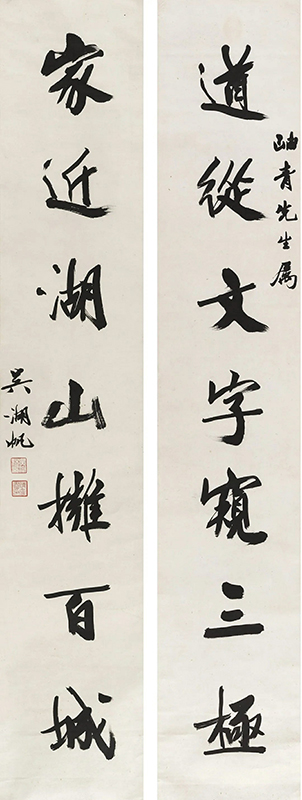 岫青先生属
道從文字窺三極
家近湖山擁百城
吳湖帆